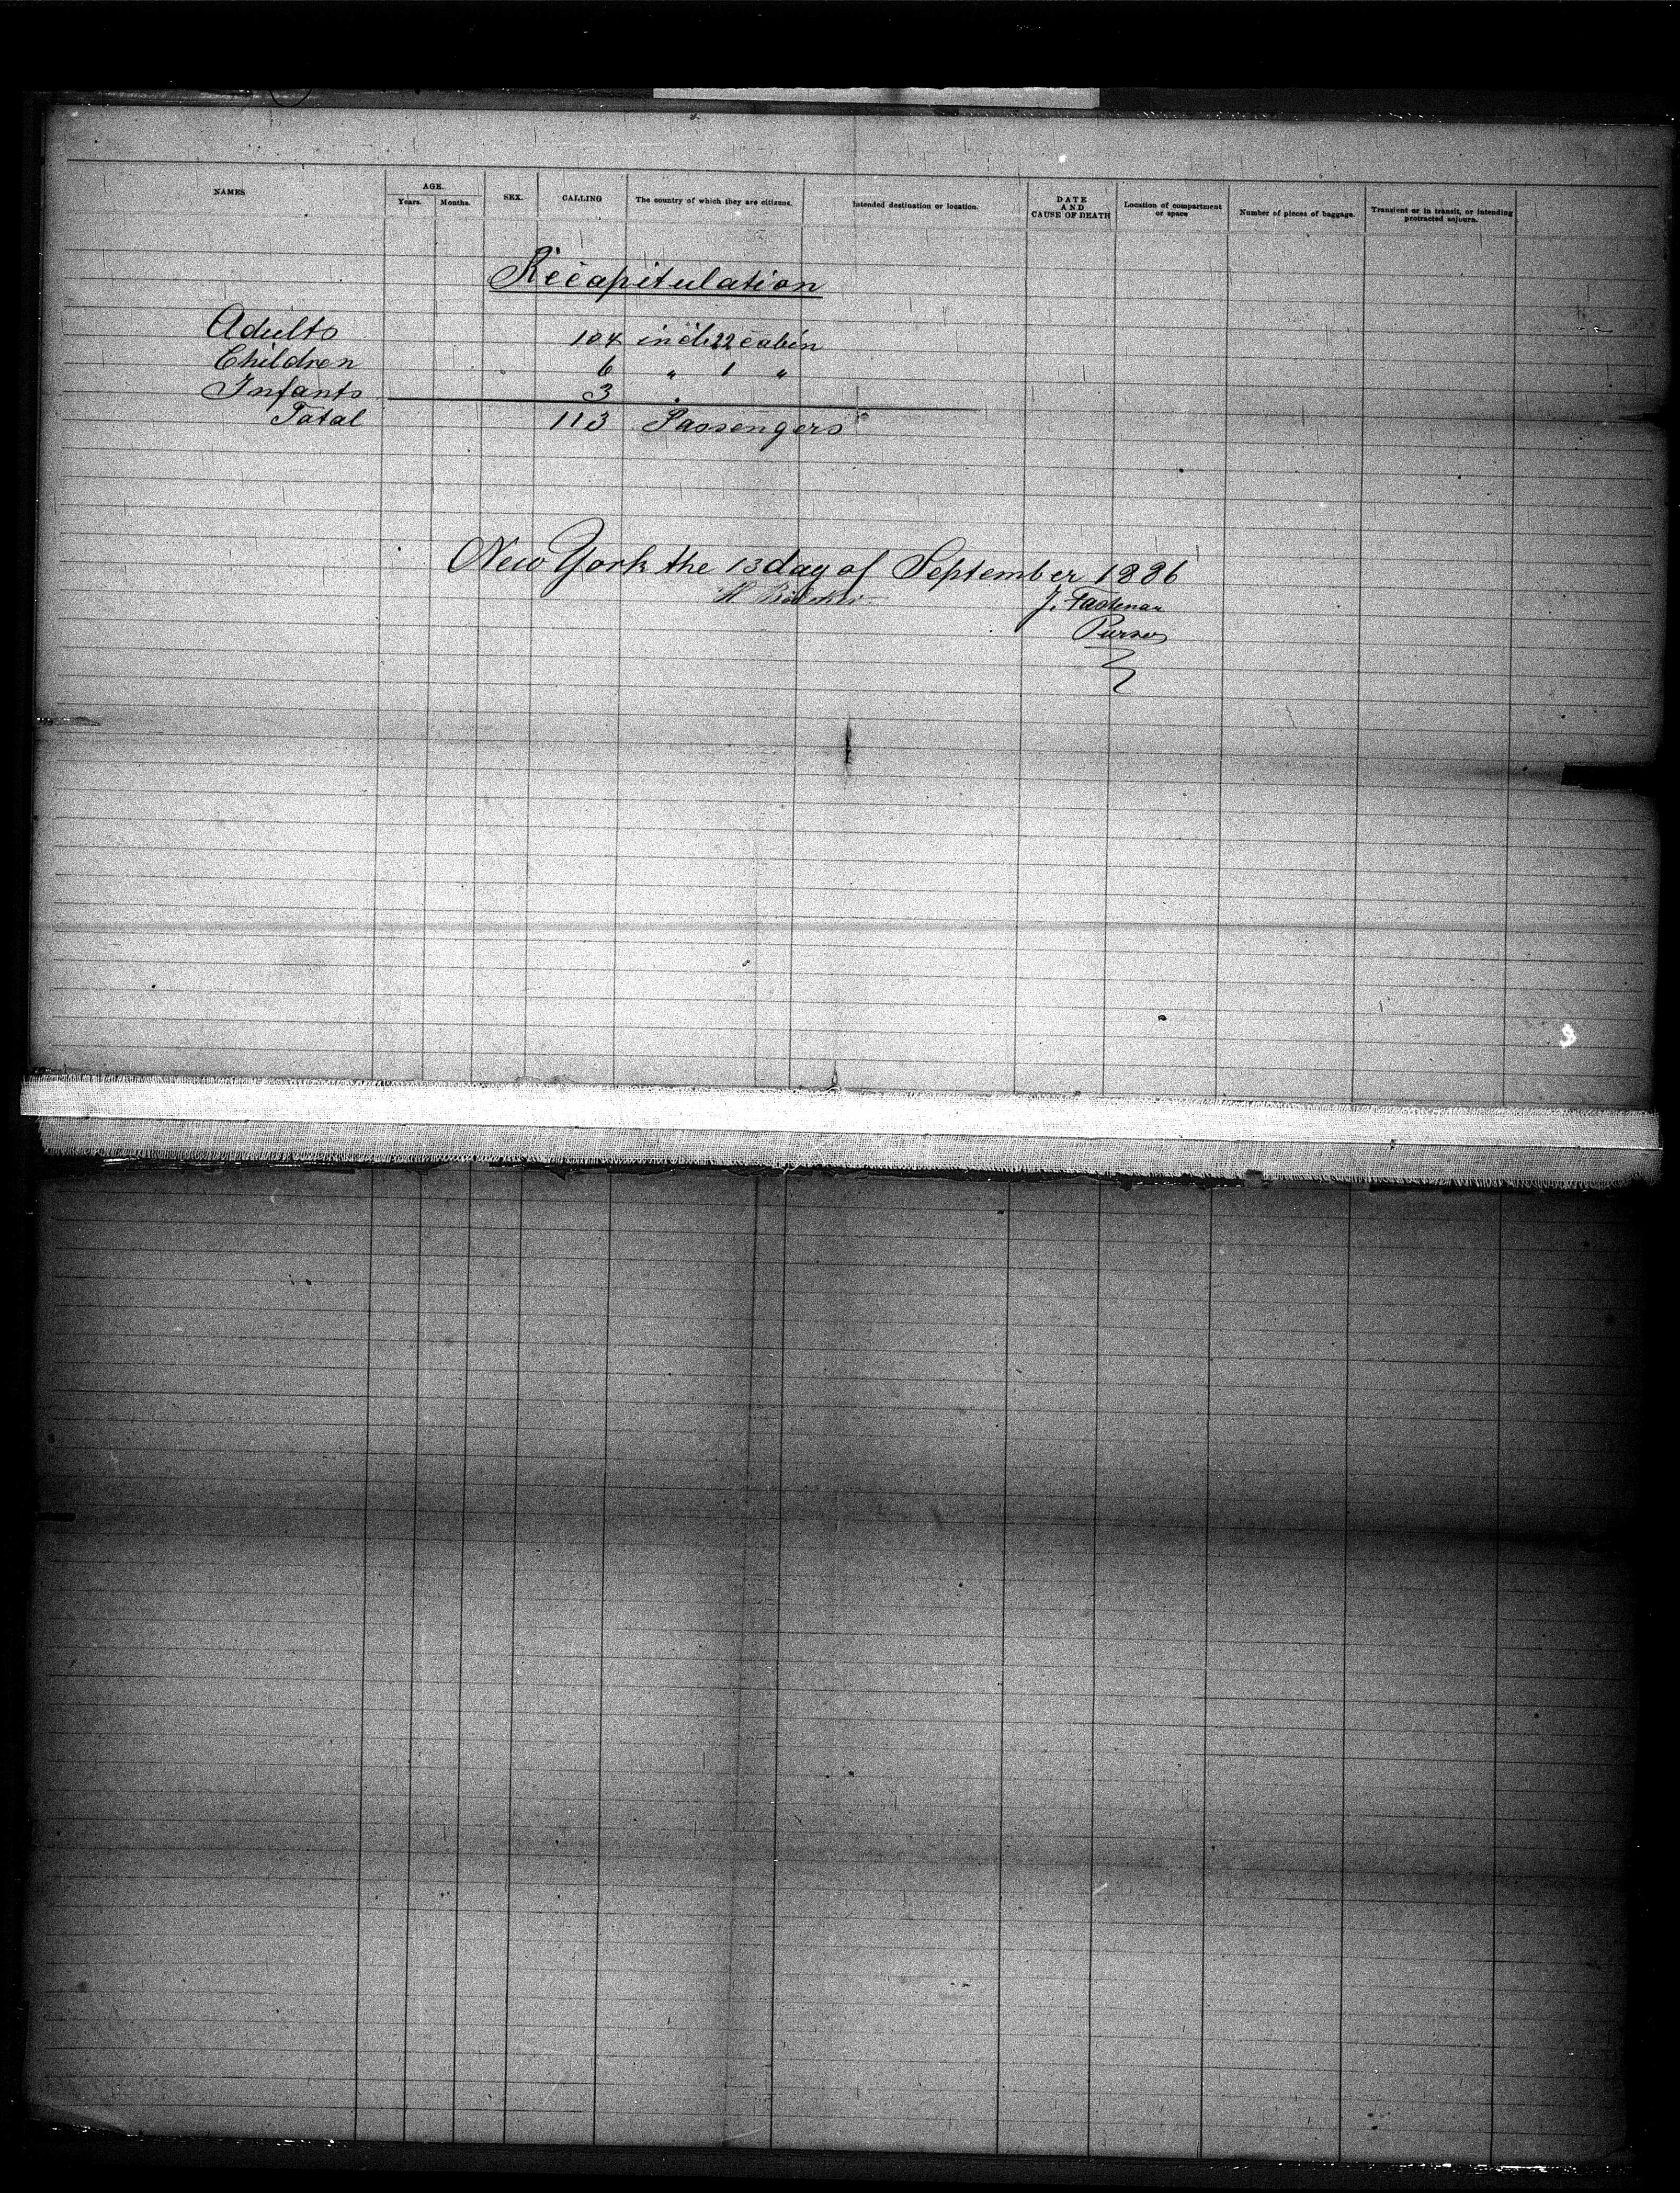 NAMES AGE. SEX. CALLING The country of which they are citizens. Intended destination or location. DATE AND CAUSE OF DEATH Location of compartment or space Number of pieces of baggage. Transient or in transit, or intending protracted sojourn.
Years. Months.
Recapitulation
Adults 104 incl. 22 cabin
Children 6 " 1 "
Infants 3
Total 113 Passengers
New York the 13 day of September 1886
J.
Purser